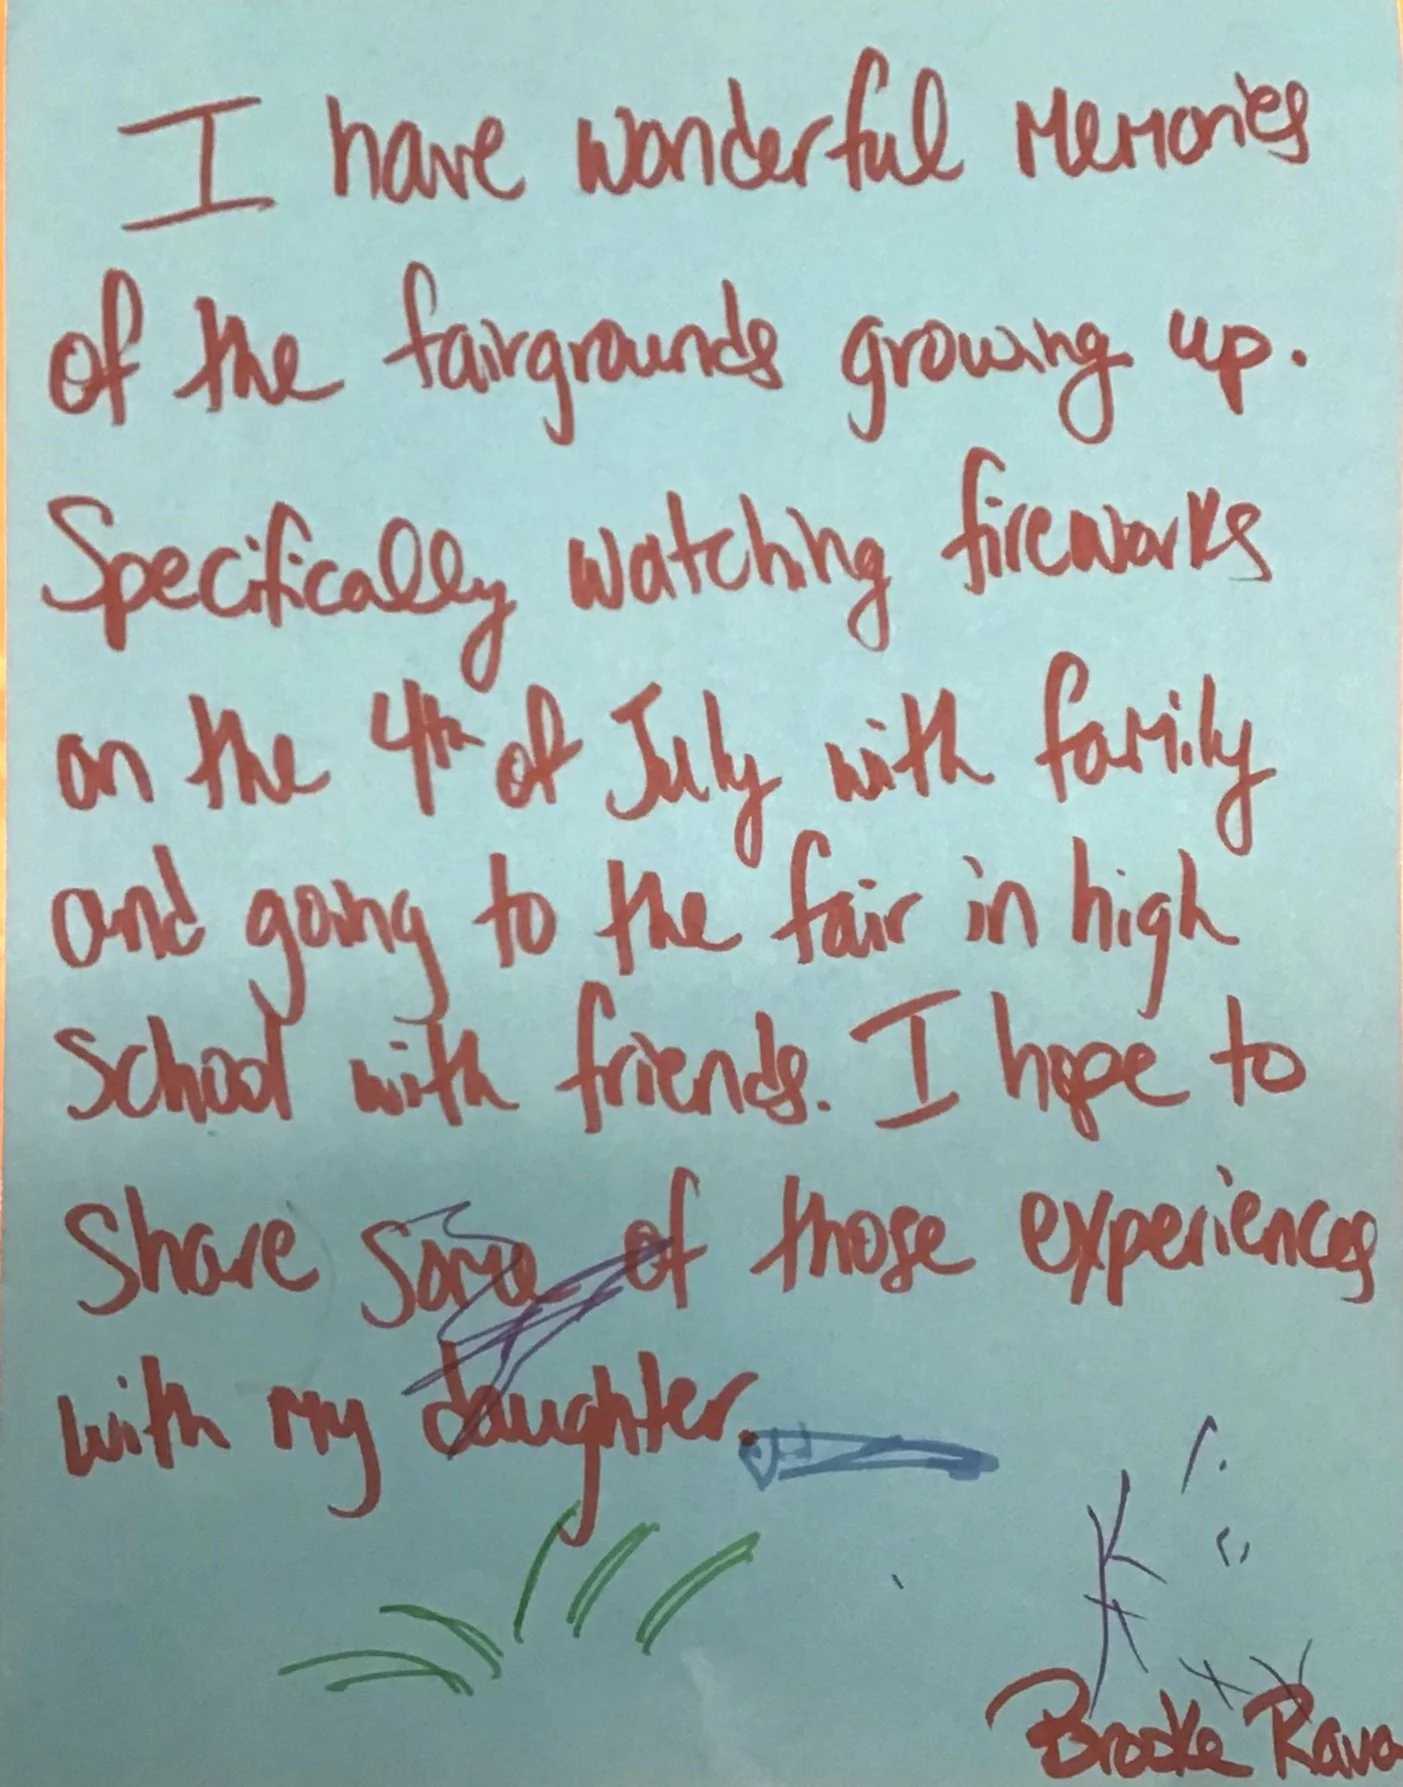 I have wonderful memories
of the fairgrounds growing up.
Specifically watching fireworks
on the 4th of July with family
and going to the fair in high
school with friends. I hope to
share some of those experiences
with my daughter.
Brooke Rava